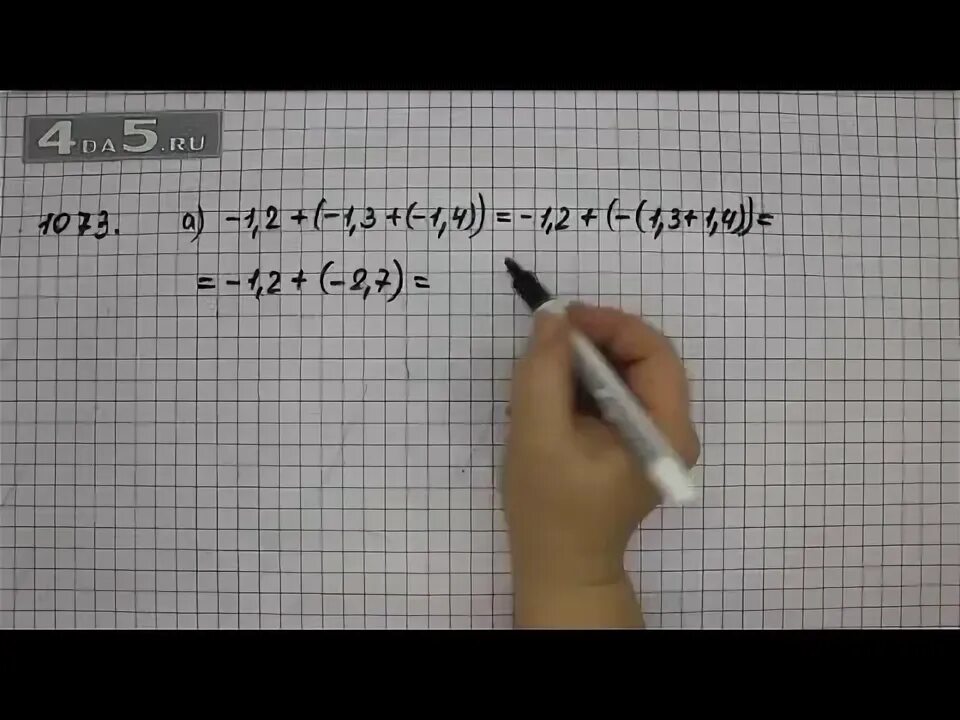 4DA5.RU
1073. а) -1,2 + (-1,3 + (-1,4)) = -1,2 + (-(1,3 + 1,4)) =
= -1,2 + (-2,7) =